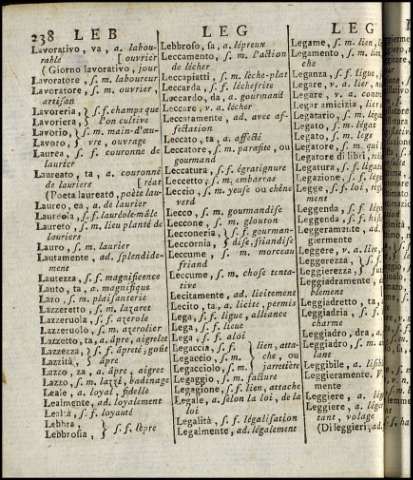 238 LEB LEG LEG
Lavorativo, va, a. labou-
rable [ ouvrier
(Giorno lavorativo, jour
Lavoratore, s. m. laboureur
Lavoratore, s. m. ouvrier,
artisan
Lavoreria, } s. f. champ que
Lavoriera, } l'on cultive
Lavorio, } s. m. main-d'œu-
Lavoro, } vre, ouvrage
Laurea, s. f. couronne de
laurier
Laureato, ta, a. couronné
de lauriers [ réat
(Poeta laureato, poëte lau-
Laureo, ea, a. de laurier
Laureola, s. f. lauréole-mâle
Laureto, s. m. lieu planté de
lauriers
Lauro, s. m. laurier
Lautamente, ad. splendide-
ment
Lautezza, s. f. magnificence
Lauto, ta, a. magnifique
Lazo, s. m. plaisanterie
Lazzeretto, s. m. lazaret
Lazzeruola, s. f. azerole
Lazzeruolo, s. m. azerolier
Lazzetto, ta, a. âpre, aigrelet
Lazzezza, } s. f. âpreté, goût
Lazzità, } âpre
Lazzo, za, a. âpre, aigret
Lazzo, s. m. lazzi, badinage
Leale, a. loyal, fidelle
Lealmente, ad. loyalement
Lealtà, s. f. loyauté
Lebbra, } s. f. lèpre
Lebbrosia, }
Lebbroso, sa, a. lépreux
Leccamento, s. m. l'action
de lécher
Leccapiatti, s. m. lèche-plat
Leccarda, s. f. lèchefrite
Leccardo, da, a. gourmand
Leccare, v. a. lécher
Leccatamente, ad. avec af-
fectation
Leccato, ta, a. affecté
Leccatore, s. m. parasite, ou
gourmand
Leccatura, s. f. égratignure
Lecceto, s. m. embarras
Leccio, s. m. yeuse ou chêne
verd
Lecco, s. m. gourmandise
Leccone, s. m. glouton
Lecconeria, } s. f. gourman-
Leccornia, } dise, friandise
Leccume, s. m. morceau
friand
Leccume, s. m. chose tenta-
tive
Lecitamente, ad. licitement
Lecito, ta, a. licite, permis
Lega, s. f. ligue, alliance
Lega, s. f. lieue
Lega, s. f. aloi
Legaccia, s. f. } lien, atta-
Legaccio, s. m. } che, ou
Legacciolo, s. m. } jarretière
Legaggio, s. m. facture
Legagione, s. f. lien, attache
Legale, a. selon la loi, de la
loi
Legalità, s. f. légalisation
Legalmente, ad. légalement
Legame, s. m. lien,
Legamento, s. m.
che
Leganza, s. f. ligue,
Legare, v. a. lier,
Legare, v. a.
Legar amicizia, lier
Legatario, s. m.
Legato, s. m. légat
Legato, s. m. legs
Legatore, s. m. qui
Legatore di libri,
Legatura, s. f.
Legazione, s. f.
Legge, s. f. loi,
ment
Leggenda, s. f.
Leggenda, s. f.
Leggeramente, ad.
giermente
Leggere, v. a.
Leggerezza, }
Leggierezza, }
Leggiadramente,
blement
Leggiadretto, ta,
Leggiadria, s. f.
charme
Leggiadro, dra,
Leggiadro, s. m.
lant
Leggibile, a.
Leggieramente,
mente
Leggiere, a.
Leggiere, a.
tant, volage
(Di leggieri, ad.